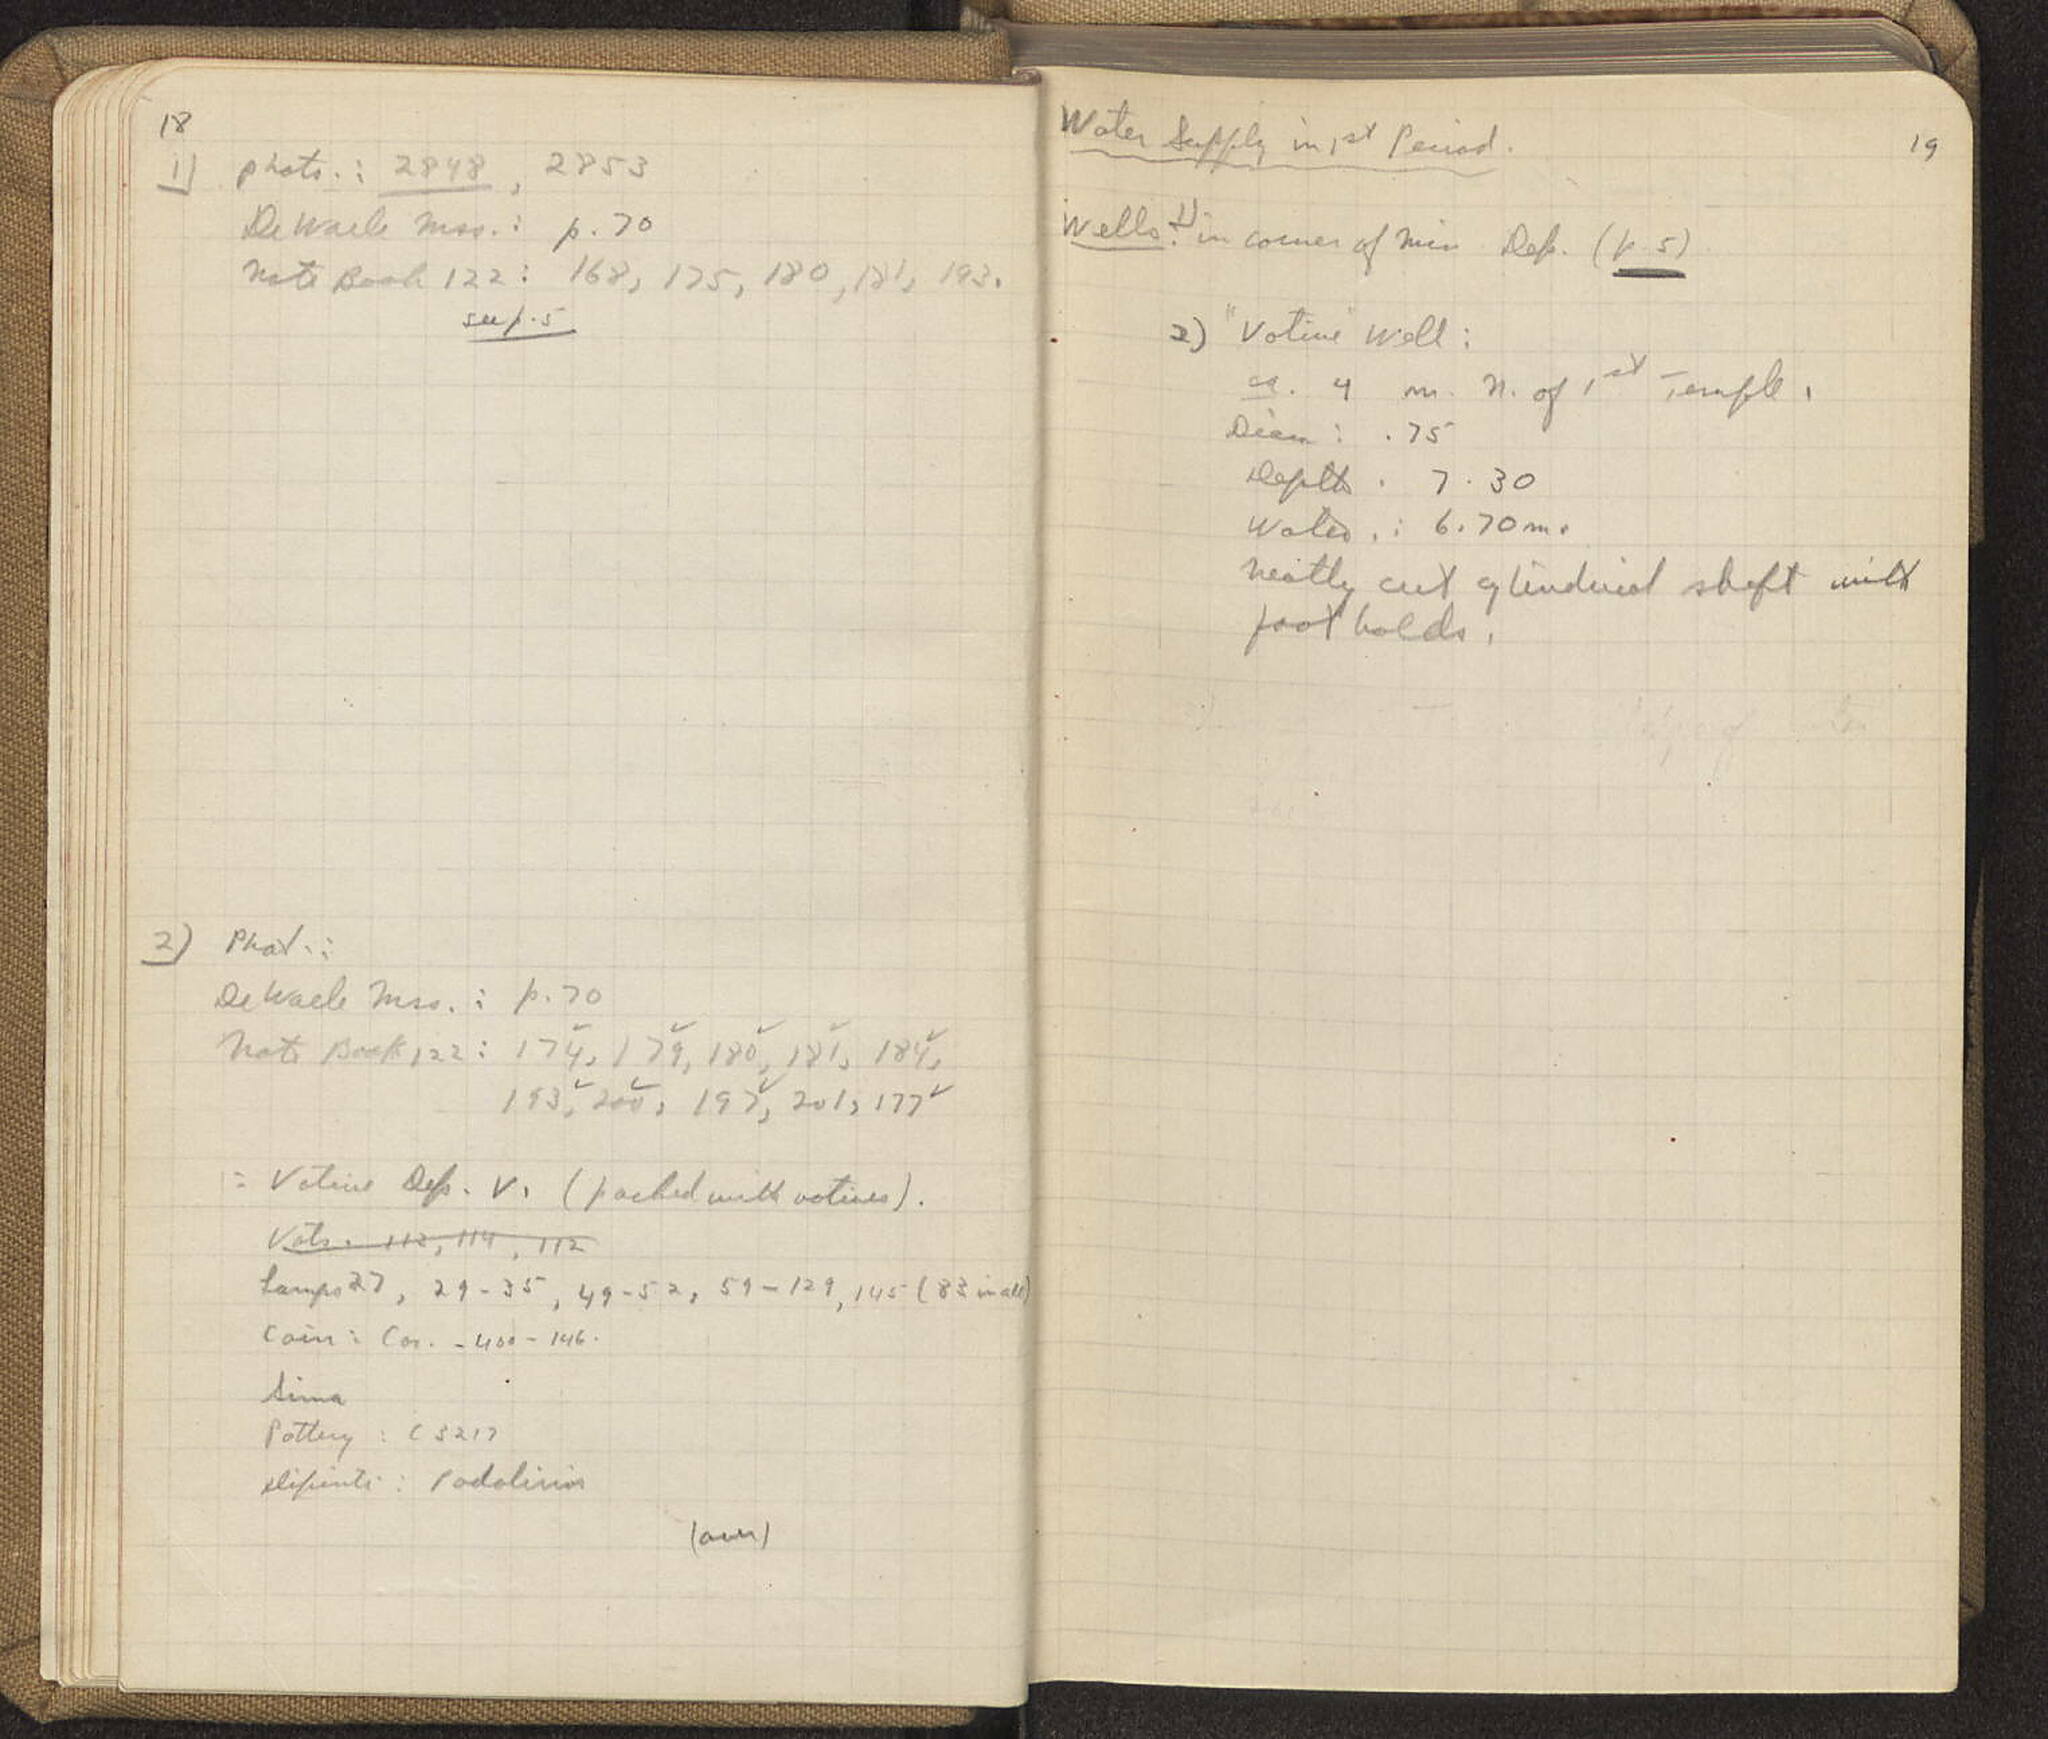 18
1) Phots.: 2848, 2853
De Waele Mss.: p. 70
Note Book 122: 168, 175, 180, 181, 193.
see p. 5
2) Phot.:
De Waele Mss.: p. 70
Note Book 122: 174✓, 179✓, 180✓, 181✓, 184✓,
193✓, 200✓, 197✓, 201, 177✓
= Votive Dep. V. (packed with votives).
Vots. 113, 114, 112
Lamps 27, 29-35, 49-52, 59-129, 145 (83 in all)
Coin: Cor. -400-146.
Sima
Pottery: CS217
: Podalirios
(over)
19
Water Supply in 1st Period.
Wells: 1) in corner of Dep. (p. 5)
2) "Votive" Well:
ca. 4 m. N. of 1st Temple.
Diam: .75
Depth. 7.30
Water.: 6.70 m.
Neatly cut cylindrical shaft with
foot holds.